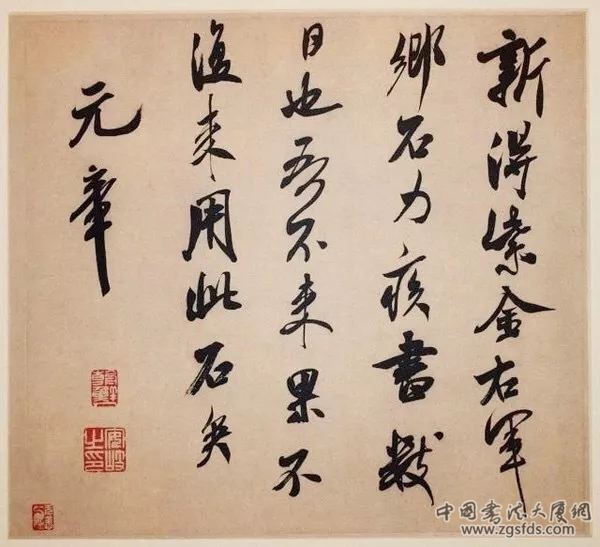 新得紫金右軍
鄉石力疾書數
日也吾不來果不
復來用此石矣
元章
安岐之印
中國書法大厦網
www.zgsfds.com